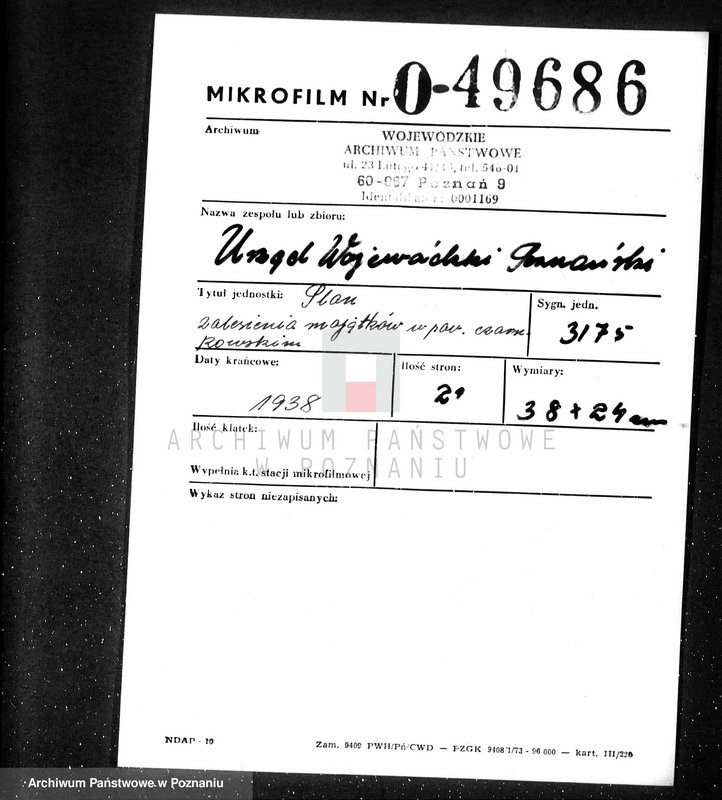 MIKROFILM Nr O-49686
Archiwum
WOJEWÓDZKIE
ARCHIWUM PAŃSTWOWE
ul. 23 Lutego 41/43, tel. 546-01
60-967 Poznań 9
Identyfikator: 0001169
Nazwa zespołu lub zbioru:
Urząd Wojewódzki Poznański
Tytuł jednostki: Plan
zalesienia majątków w pow. czarn-
kowskim
Sygn. jedn.
3175
Daty krańcowe:
1938
Ilość stron:
Wymiary:
38 + 24 cm
Ilość klatek:
Wypełnia k.t. stacji mikrofilmowej
Wykaz stron niezapisanych:
ARCHIWUM PAŃSTWOWE
W POZNANIU
NDAP - 10
Zam. 9409 PWH/Pń/CWD — PZGK 9408/1/73 - 96 000 — kart. III/220
Archiwum Państwowe w Poznaniu